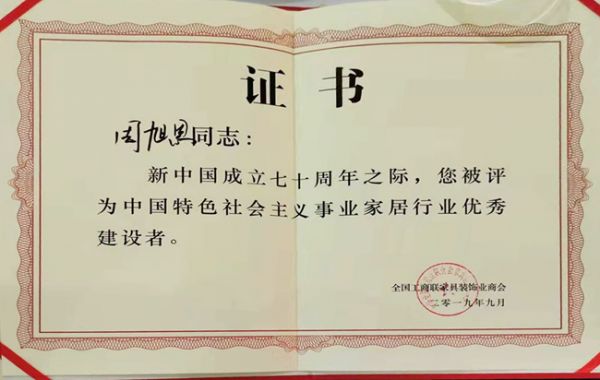 证书
周旭恩同志：
新中国成立七十周年之际，您被评
为中国特色社会主义事业家居行业优秀
建设者。
全国工商联家具装饰业商会
二零一九年九月